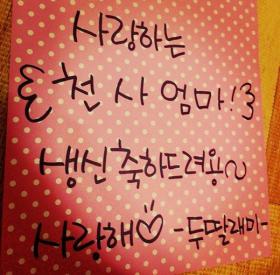 사랑하는
천사 엄마!
생신 축하드려용~
사랑해♡ -두딸래미-